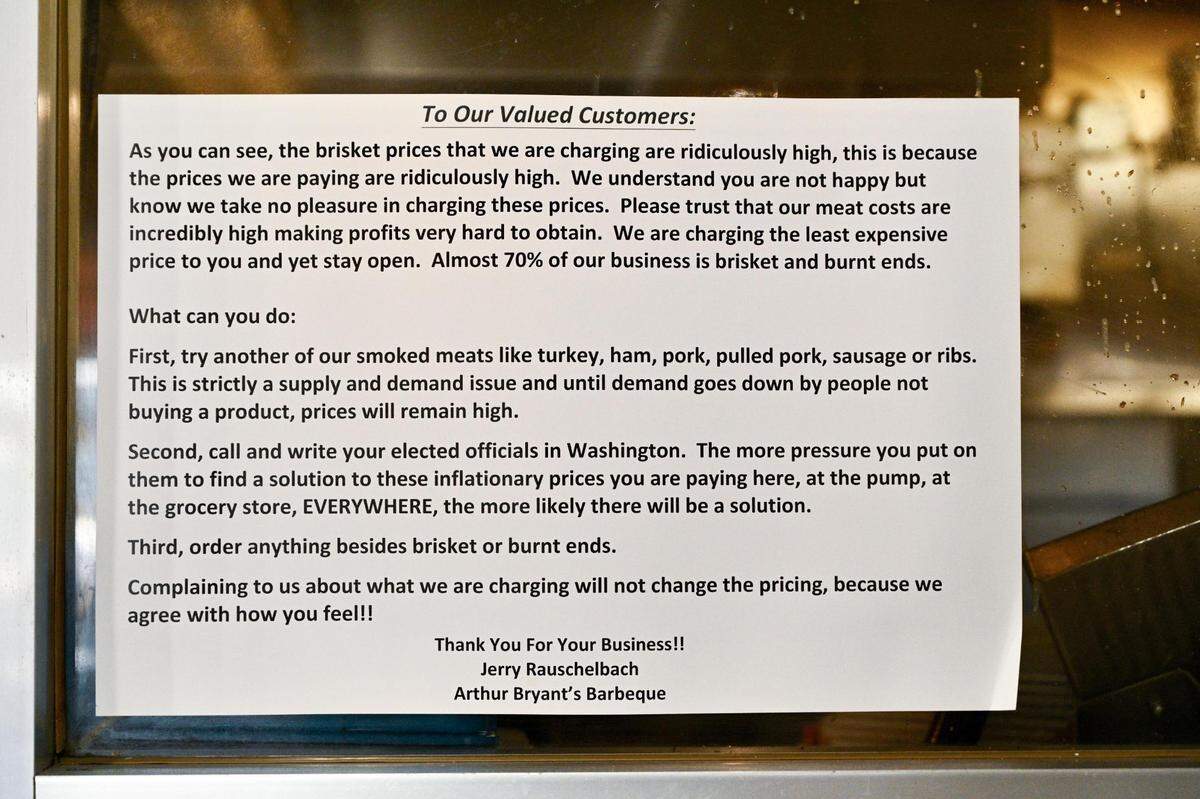 To Our Valued Customers:
As you can see, the brisket prices that we are charging are ridiculously high, this is because
the prices we are paying are ridiculously high.  We understand you are not happy but
know we take no pleasure in charging these prices.  Please trust that our meat costs are
incredibly high making profits very hard to obtain.  We are charging the least expensive
price to you and yet stay open.  Almost 70% of our business is brisket and burnt ends.
What can you do:
First, try another of our smoked meats like turkey, ham, pork, pulled pork, sausage or ribs.
This is strictly a supply and demand issue and until demand goes down by people not
buying a product, prices will remain high.
Second, call and write your elected officials in Washington.  The more pressure you put on
them to find a solution to these inflationary prices you are paying here, at the pump, at
the grocery store, EVERYWHERE, the more likely there will be a solution.
Third, order anything besides brisket or burnt ends.
Complaining to us about what we are charging will not change the pricing, because we
agree with how you feel!!
Thank You For Your Business!!
Jerry Rauschelbach
Arthur Bryant’s Barbeque